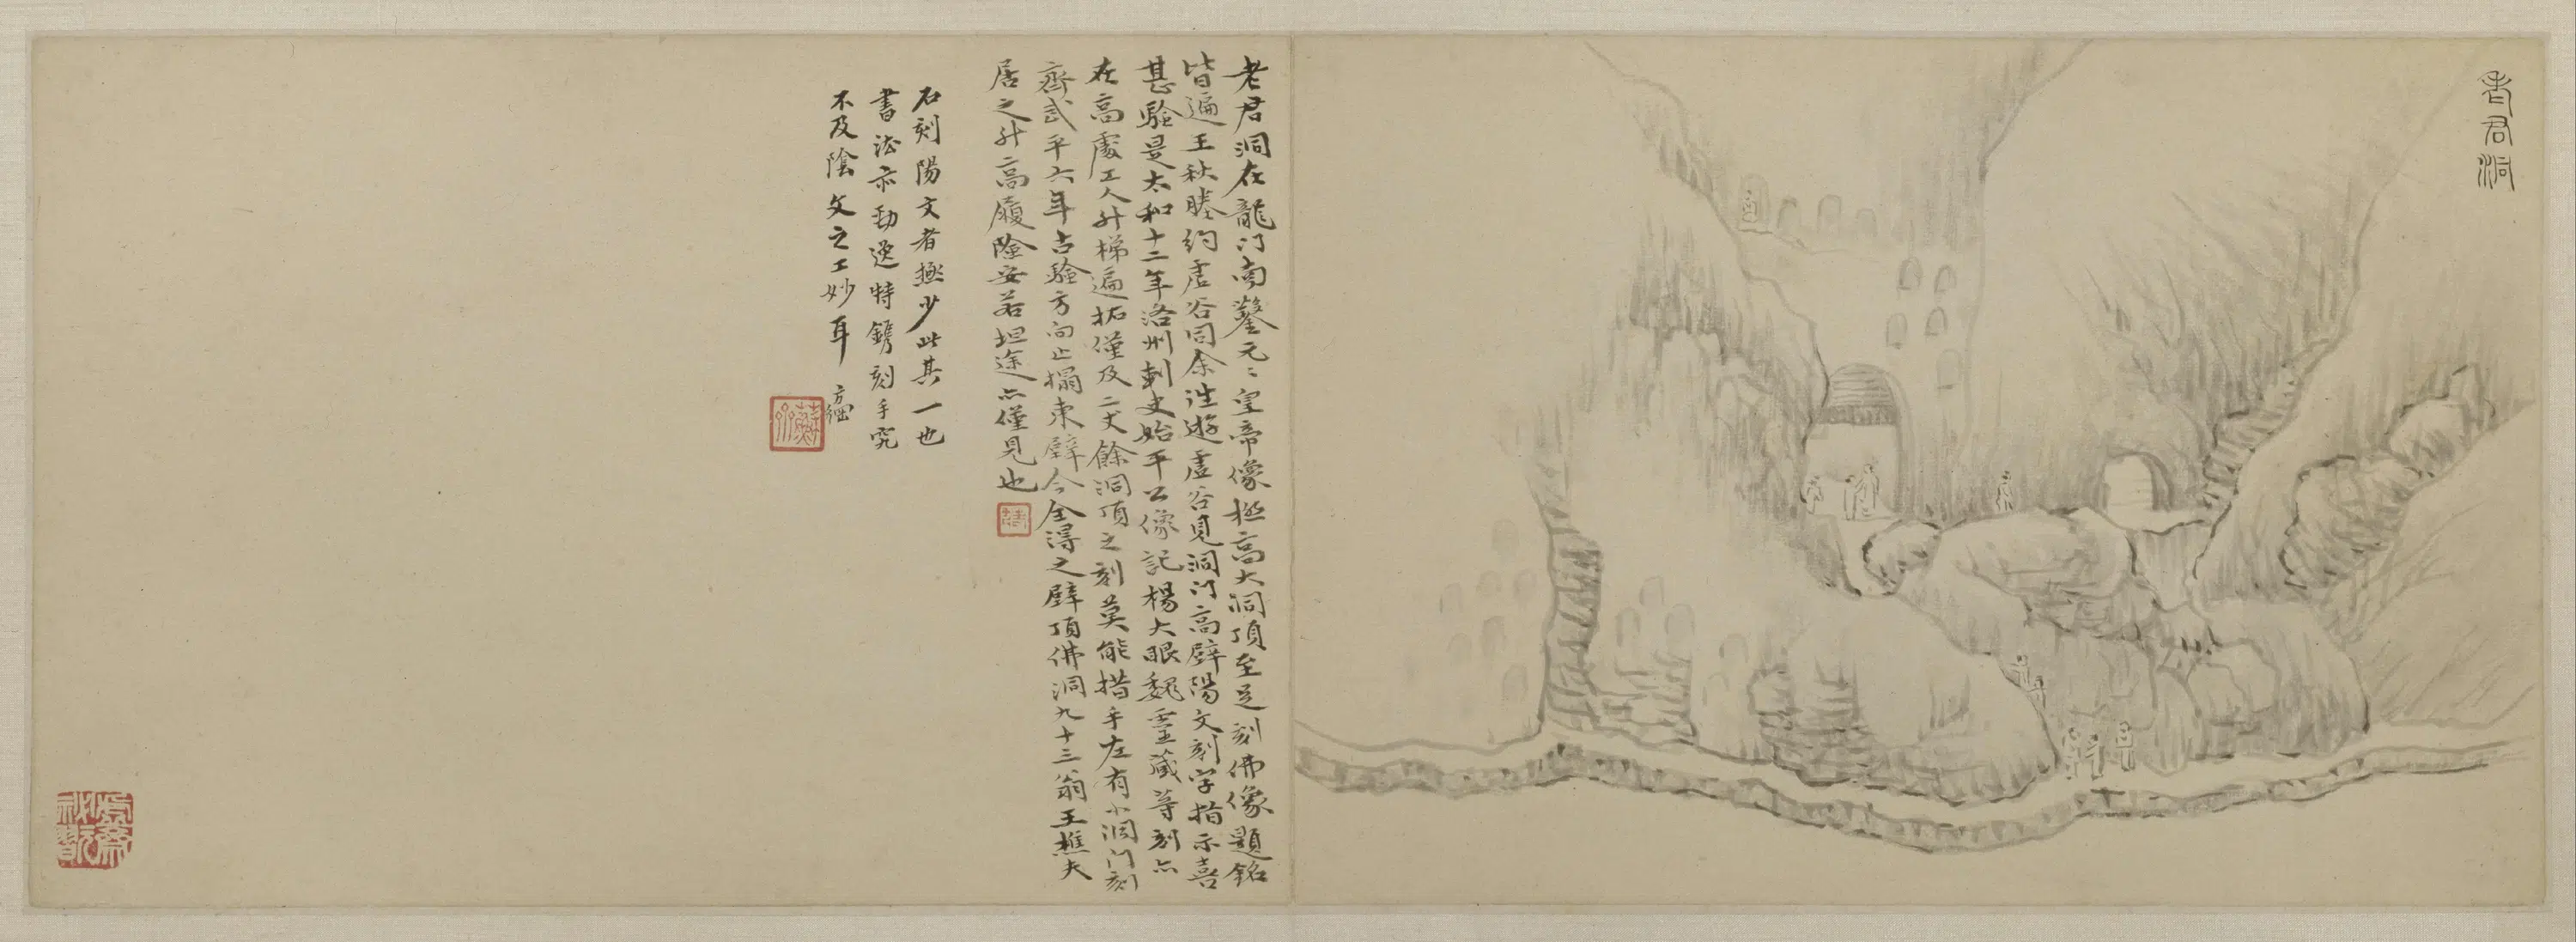 老君洞
老君洞在龍门南鑿元〻皇帝像極高大洞頂至足刻佛像題銘
皆遍王秋塍約虛谷同余往遊虛谷見洞门高壁陽文刻字指示喜
甚驗是太和十二年洛州刺史始平公像記楊大眼魏靈藏等刻亦
在高處工人升梯遍拓僅及二丈餘洞頂之刻莫能措手左有小洞门刻
齊武平六年古驗方向止搨東壁今全淂之壁頂佛洞九十三翁王樵夫
居之升高履險安若坦途亦僅見也
石刻陽文者極少此其一也
書法亦勁逸特鐫刻手究
不及陰文之工妙耳 方綱